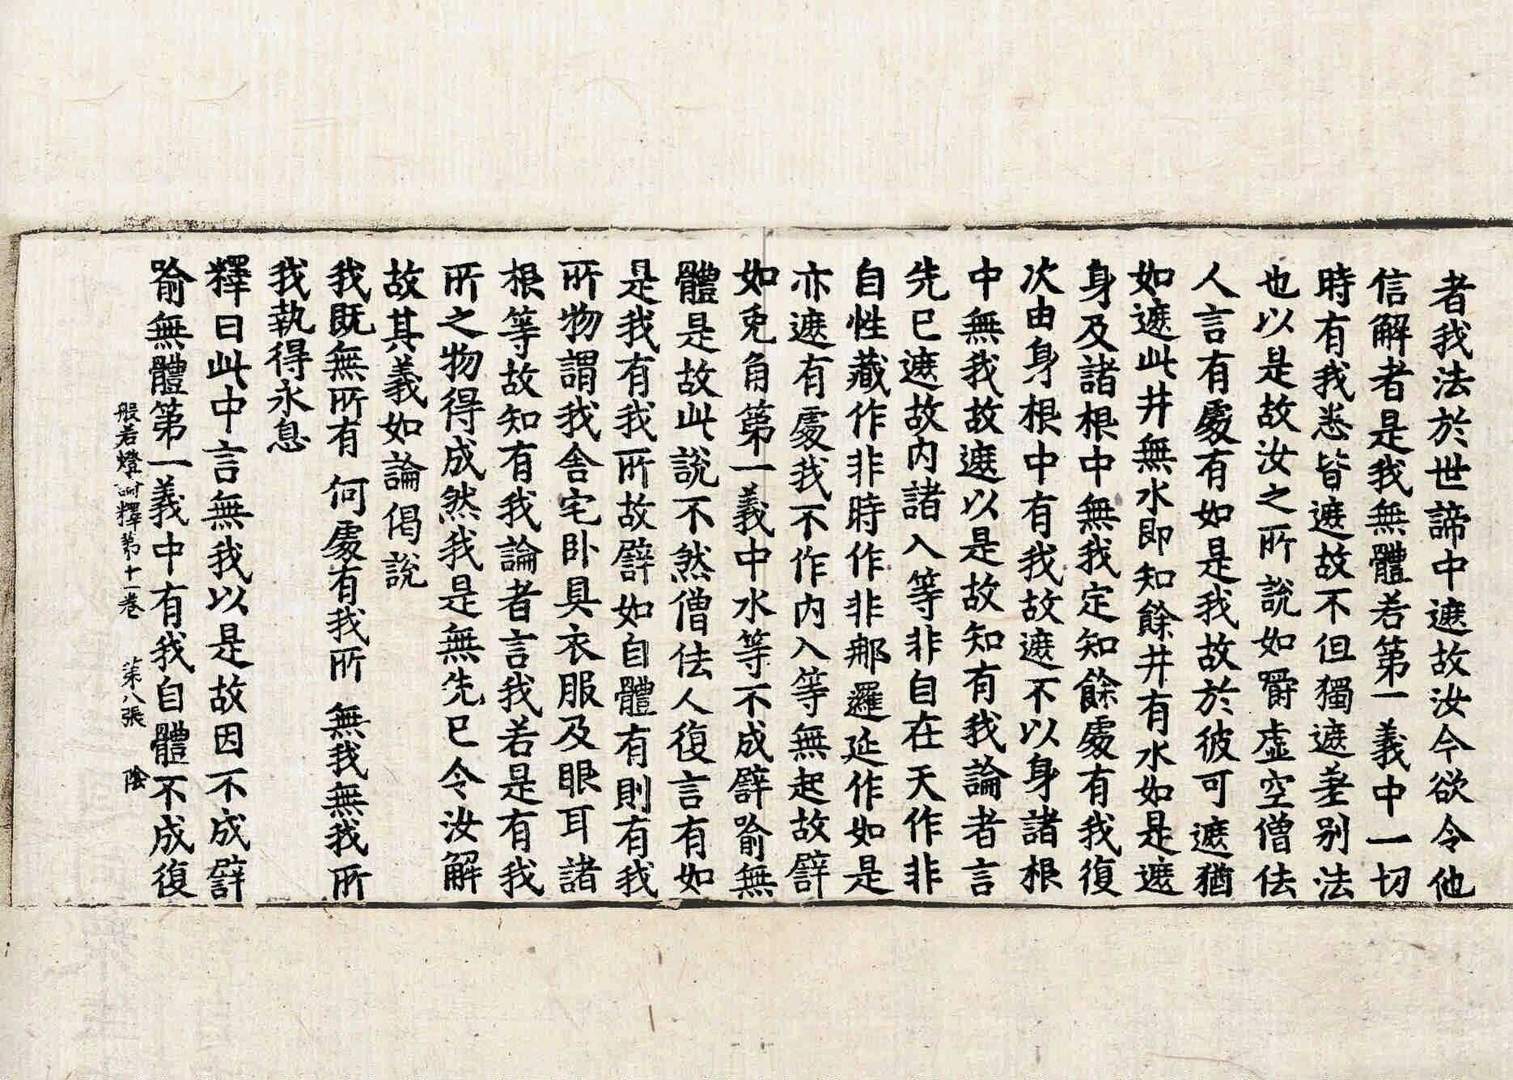 者我法於世諦中遮故汝今欲令他
信解者是我無體若第一義中一切
時有我悉皆遮故不但獨遮差別法
也以是故汝之所說如嚼虛空僧佉
人言有處有如是我故於彼可遮猶
如遮此井無水即知餘井有水如是遮
身及諸根中無我定知餘處有我復
次由身根中有我故遮不以身諸根
中無我故遮以是故知有我論者言
先已遮故內諸入等非自在天作非
自性藏作非時作非那邏延作如是
亦遮有處我不作內入等無起故譬
如兎角第一義中水等不成譬喻無
體是故此說不然僧佉人復言有如
是我有我所故譬如自體有則有我
所物謂我舍宅臥具衣服及眼耳諸
根等故知有我論者言我若是有我
所之物得成然我是無先已令汝解
故其義如論偈說
我既無所有 何處有我所 無我無我所
我執得永息
釋曰此中言無我以是故因不成譬
喻無體第一義中有我自體不成復
般若燈論釋第十一卷 第八張 陰